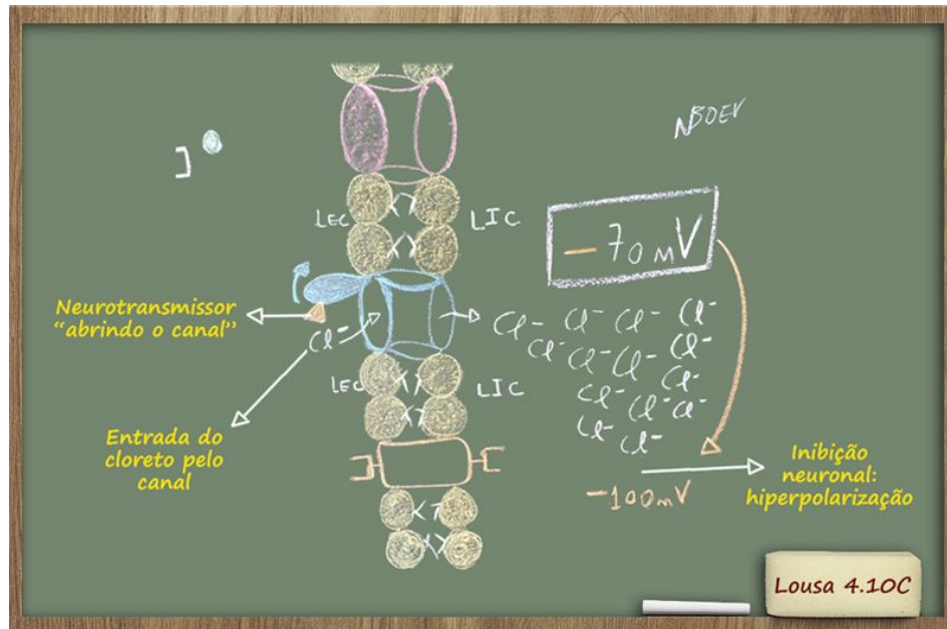 LEC
LIC
-70mV
Neurotransmissor
“abrindo o canal”
Cl-
Cl- Cl- Cl- Cl-
Cl- Cl- Cl- Cl-
Cl-
Cl- Cl- Cl-
Cl- Cl-
LEC
LIC
Entrada do
cloreto pelo
canal
-100mV
Inibição
neuronal:
hiperpolarização
Lousa 4.10C